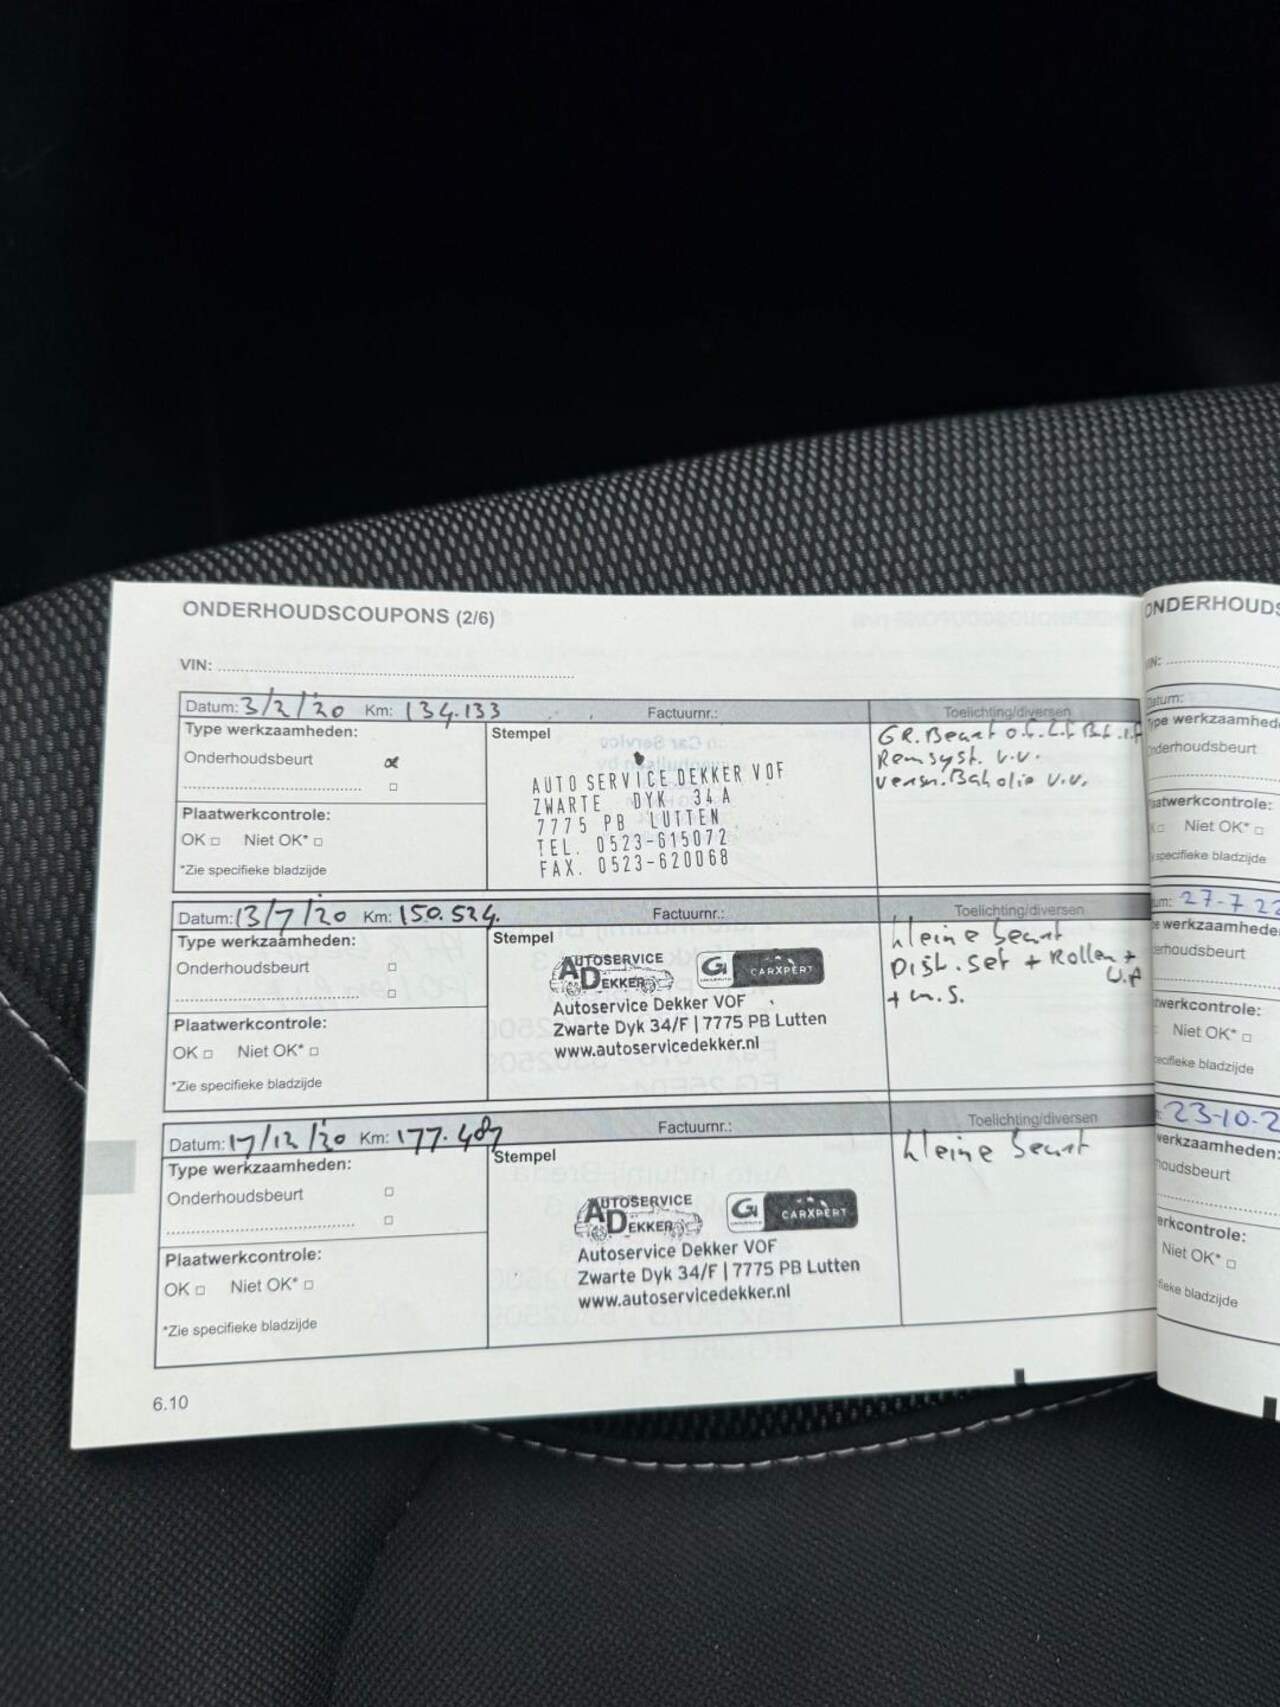 ONDERHOUDSCOUPONS (2/6)
VIN:
Datum: 3/2/'20 Km: 134.133 Factuurnr.: Toelichting/diversen
Type werkzaamheden:
Onderhoudsbeurt
Plaatwerkcontrole:
OK □ Niet OK* □
*Zie specifieke bladzijde
Stempel
AUTO SERVICE DEKKER VOF
ZWARTE DYK 34A
7775 PB LUTTEN
TEL. 0523-615072
FAX. 0523-620068
GR. Beurt o.f. L.f
Remsyst. v.v.
versn. Bakolie v.v.
Datum: 13/7/'20 Km: 150.524. Factuurnr.: Toelichting/diversen
Type werkzaamheden:
Onderhoudsbeurt □
□
Plaatwerkcontrole:
OK □ Niet OK* □
*Zie specifieke bladzijde
Stempel
AUTOSERVICE
DEKKER
G CARXPERT
Autoservice Dekker VOF
Zwarte Dyk 34/F | 7775 PB Lutten
www.autoservicedekker.nl
kleine beurt
Dist. set + Rollen +
Datum: 17/12/'20 Km: 177.487 Factuurnr.: Toelichting/diversen
Type werkzaamheden:
Onderhoudsbeurt □
□
Plaatwerkcontrole:
OK □ Niet OK* □
*Zie specifieke bladzijde
Stempel
AUTOSERVICE
DEKKER
G CARXPERT
Autoservice Dekker VOF
Zwarte Dyk 34/F | 7775 PB Lutten
www.autoservicedekker.nl
kleine beurt
6.10
ONDERHOUDS
Niet OK* □
27-7-22
Niet OK* □
23-10-2
Niet OK* □